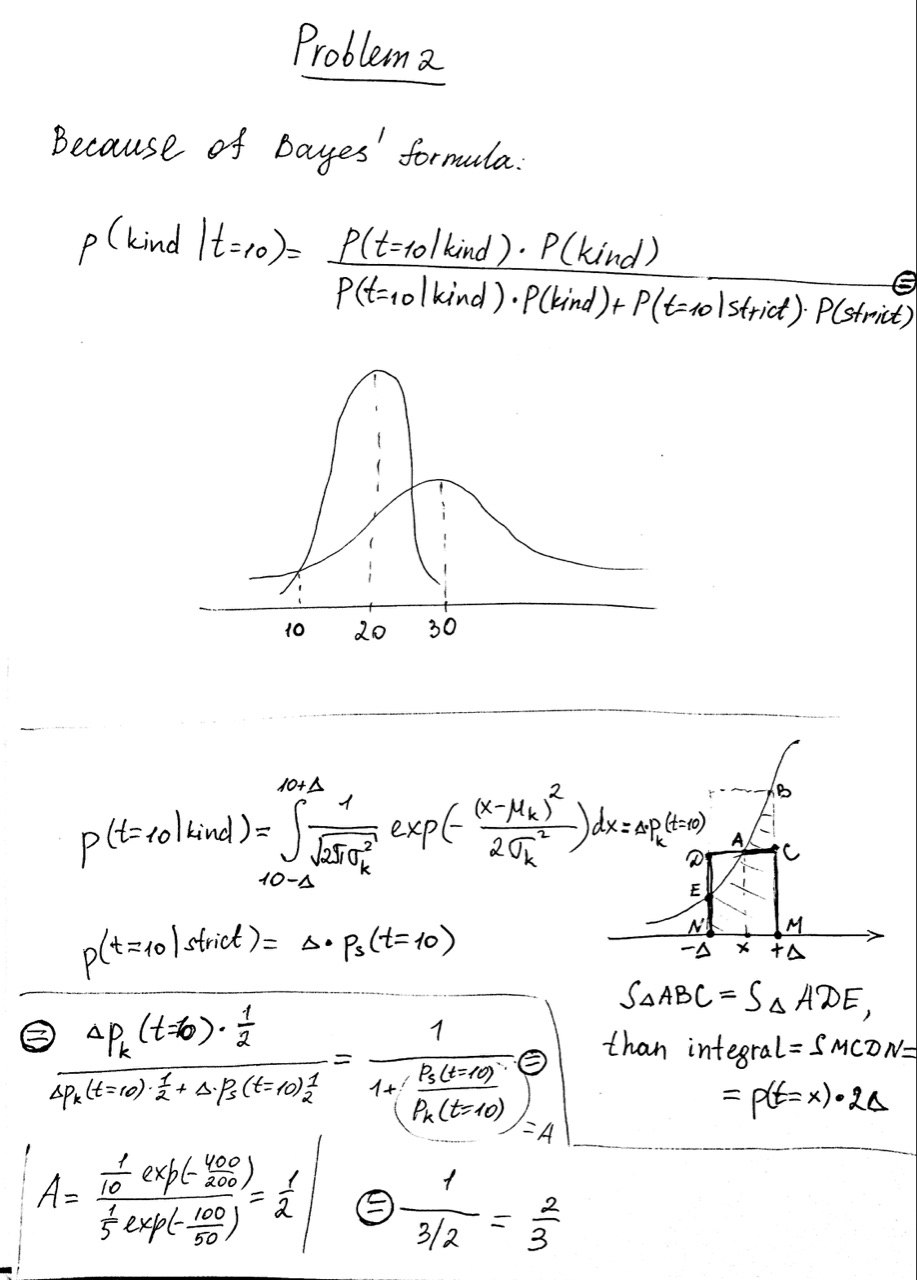 Problem 2
Because of Bayes' formula:
p(kind |t=10)= P(t=10|kind)·P(kind) / P(t=10|kind)·P(kind)+P(t=10|strict)·P(strict) ⊜
10 20 30
p(t=10|kind)= ∫_{10-Δ}^{10+Δ} 1/√(2πσ_k²) exp(-(x-μ_k)²/2σ_k²)dx=Δ·p_k(t=10)
p(t=10|strict)= Δ·p_s(t=10)
B
D A C
E
N M
-Δ x +Δ
S△ABC = S△ADE,
than integral=SMCDN=
= p(t=x)·2Δ
⊜ Δp_k(t=10)·1/2 / Δp_k(t=10)·1/2+Δ·p_s(t=10)1/2 = 1 / 1+ p_s(t=10)/p_k(t=10) ⊜
=A
A= 1/10 exp(-400/200) / 1/5 exp(-100/50) = 1/2
⊜ 1 / 3/2 = 2/3